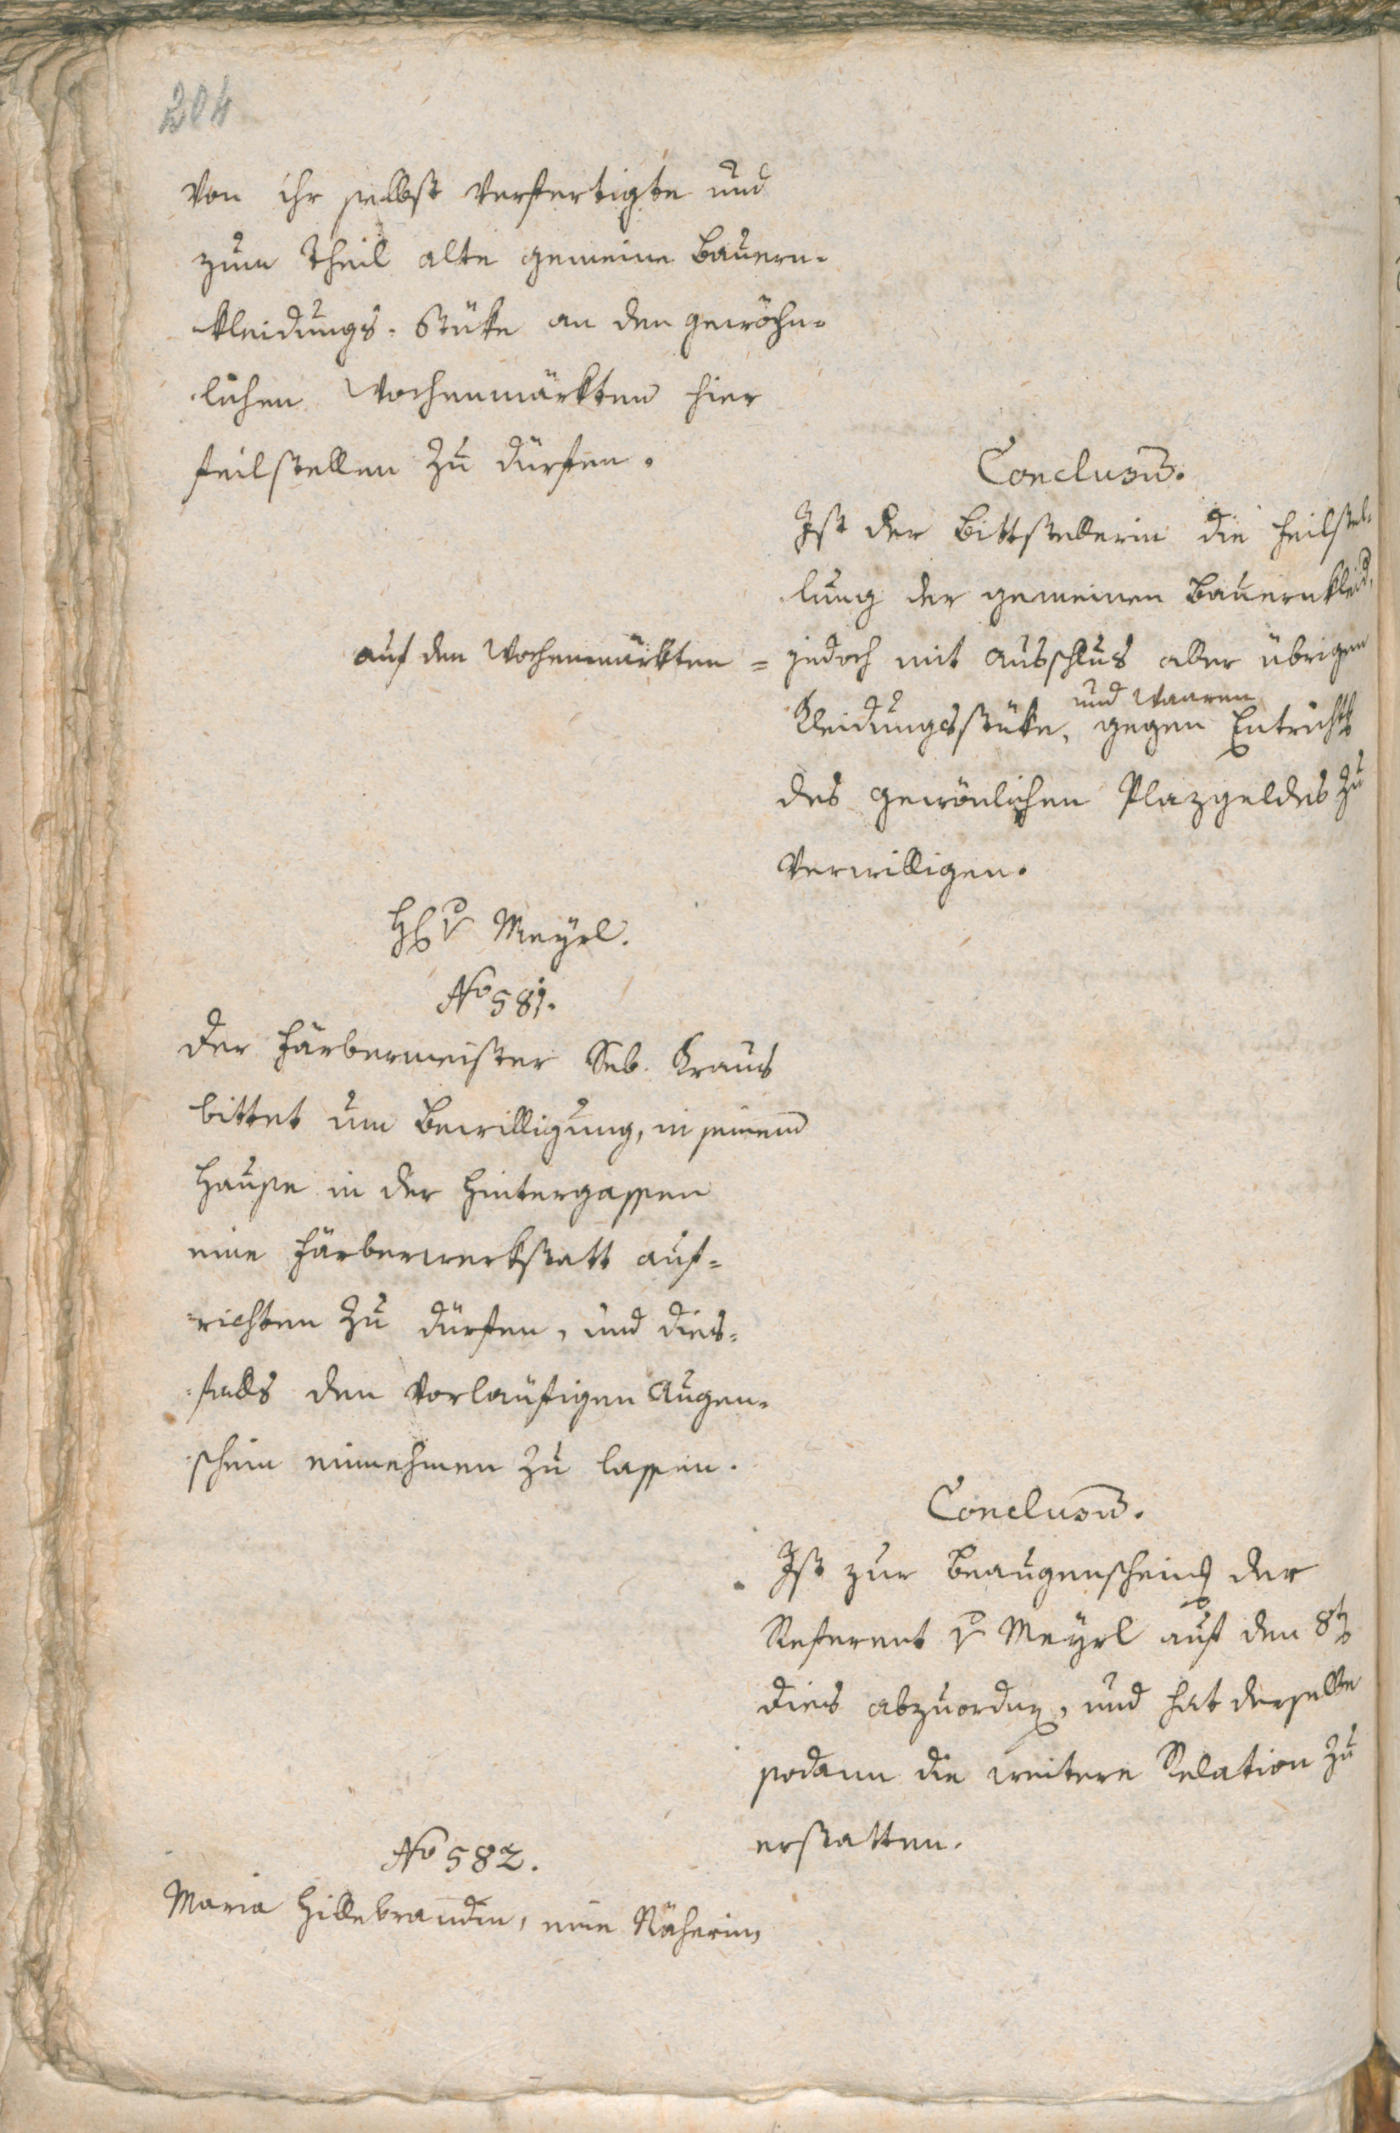 204
von ihr selbst verfertigte und
zum Theil alte gemeine Bauern-
kleidungs-Stüke an den gewöhn-
lichen Wochenmärkten hier
feilstellen zu dürfen.
Conclusum.
Ist der Bittstellerin die Feilstel-
lung der gemeinen Bauernkleid.
auf den Wochenmärkten = jedoch mit Ausschlus aller übrigen
und Waaren
Kleidungsstüke, gegen Entricht
des gewönlichen Plazgeldes zu
verwilligen.
H v Meyrl.
No 581.
Der Färbermeister Seb. Kraus
bittet um Bewilligung, in seinem
Hause in der Hintergassen
eine Färberwerkstatt auf-
richten zu dürfen, und dies-
falls den vorläufigen Augen-
schein einnehmen zu lassen.
Conclusum.
Ist zur Beaugenschein der
Referent v Meyrl auf den 8t
dies abzuordn, und hat derselbe
sodann die weitere Relation zu
erstatten.
No 582.
Maria Hillebrandin, eine Näherin,